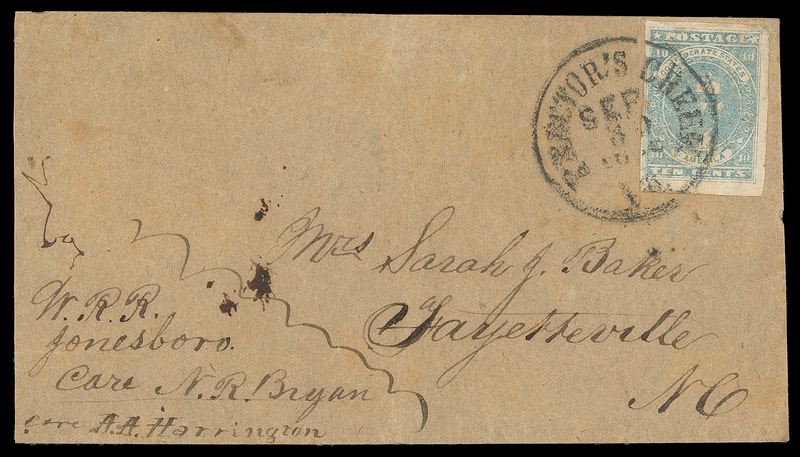 RECTOR'S CREEK
SEP
8
POSTAGE
10 10
CONFEDERATE STATES
OF AMERICA
10 10
TEN CENTS
Mrs Sarah J. Baker
Fayetteville
NC
W. R. R.
Jonesboro.
Care N. R. Bryan
care A.A. Harrington